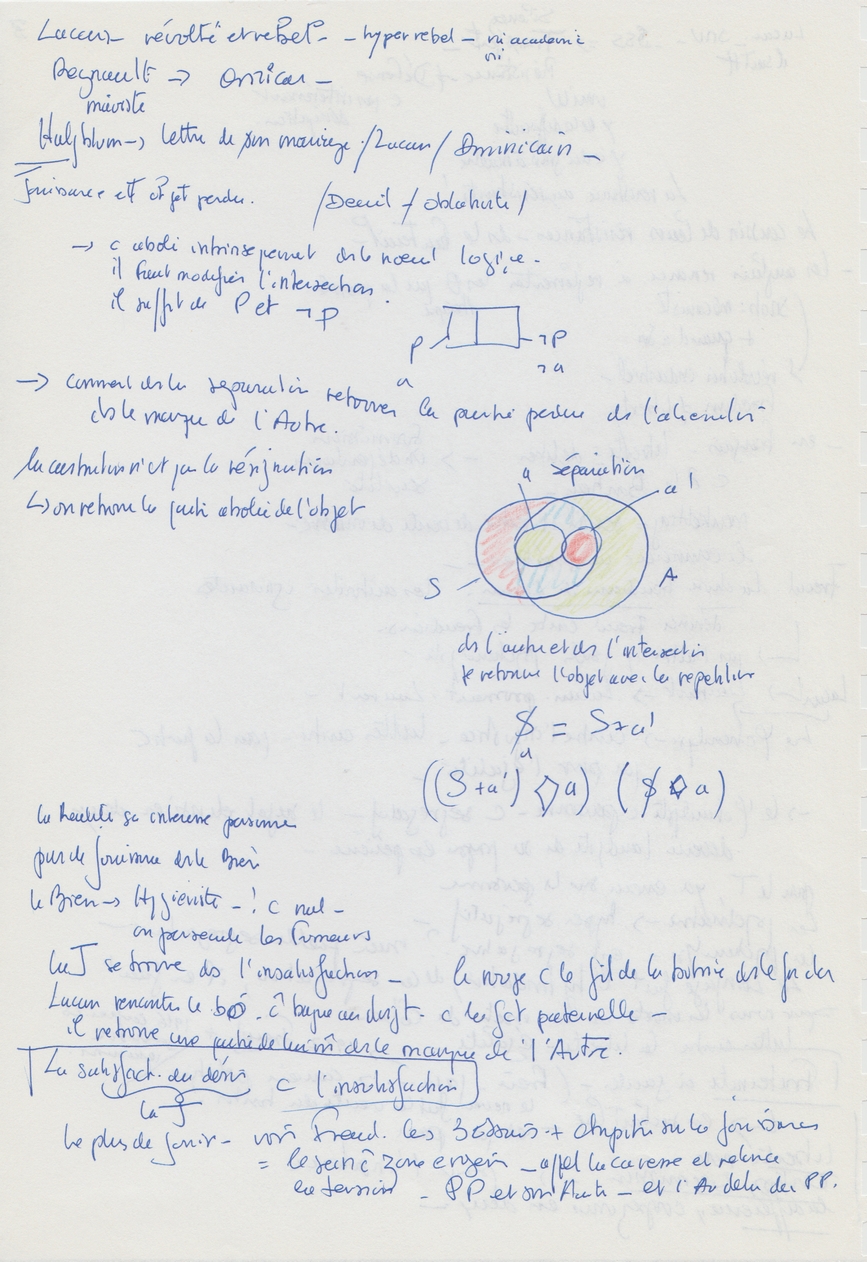 Lacan – révolté et rebel – – hyper rebel –
Regnault → Ornicar –
maoïste
→ lettre de son mariage / Lacan / Dominicain –
Jouissance et objet perdu. / Deuil / oblativité /
→ c aboli intrinsequement ds le nœud logique –
il faut modifier l'intersection
il suffit de P et ¬P
P ¬P
a ¬a
→ comment ds la séparation retrouver la partie perdue de l'aliénation
ds le manque de l'Autre.
la castration n'est pas la résignation
↳ on retrouve la partie abolie de l'objet
séparation
a a'
S A
ds l'autre et ds l'intersection
je retrouve l'objet avec la repetition
$ = S+a'
a
((S+a') ◇ a) ($ ◇ a)
la Réalité ça interesse personne
pas de jouissance ds le Bien
le Bien → Hygiéniste – ! c nul –
on persecute les fumeurs
la J se trouve ds l'insatisfaction –
Lacan rencontre le – c la fct paternelle –
il retrouve une partie de lui m̂ ds le manque de l'Autre.
La satisfact. du désir c l'insatisfaction
La J
Le plus de jouir – voir Freud. les 3 Essais +
= le sein c zone erogène – et relance
la tension – PP et – et l'Au dela du PP.